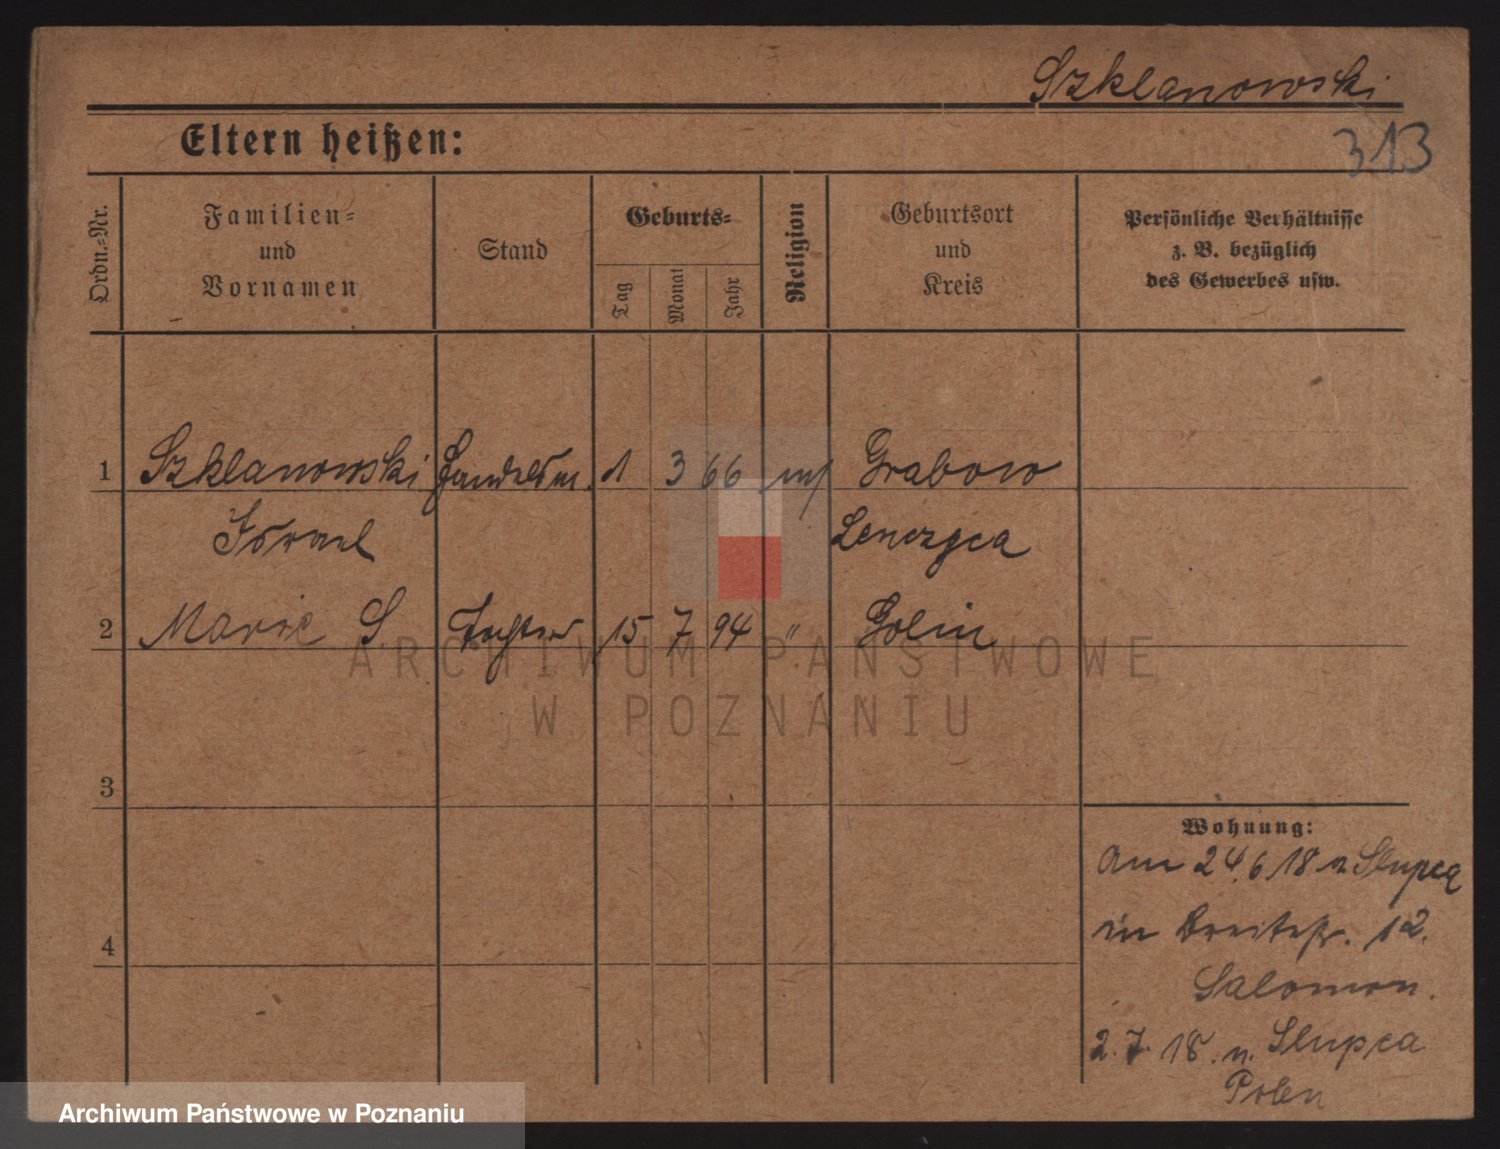 Szklanowski
313
Eltern heißen:
Ordn.-Nr.
Familien-
und
Vornamen
Stand
Geburts-
Tag
Monat
Jahr
Religion
Geburtsort
und
Kreis
Persönliche Verhältnisse
z. B. bezüglich
des Gewerbes usw.
1 Szklanowski Handelsm. 1 3 66 Grabow
Israel Lenczyca
2 Marie S. Tochter 15 7 94 " Golin
3
4
Wohnung:
Am 24.6.18 v. Slupca
in Breitestr. 12.
Salomon.
2.7.18. n. Slupca
Polen
ARCHIWUM PAŃSTWOWE
W POZNANIU
Archiwum Państwowe w Poznaniu